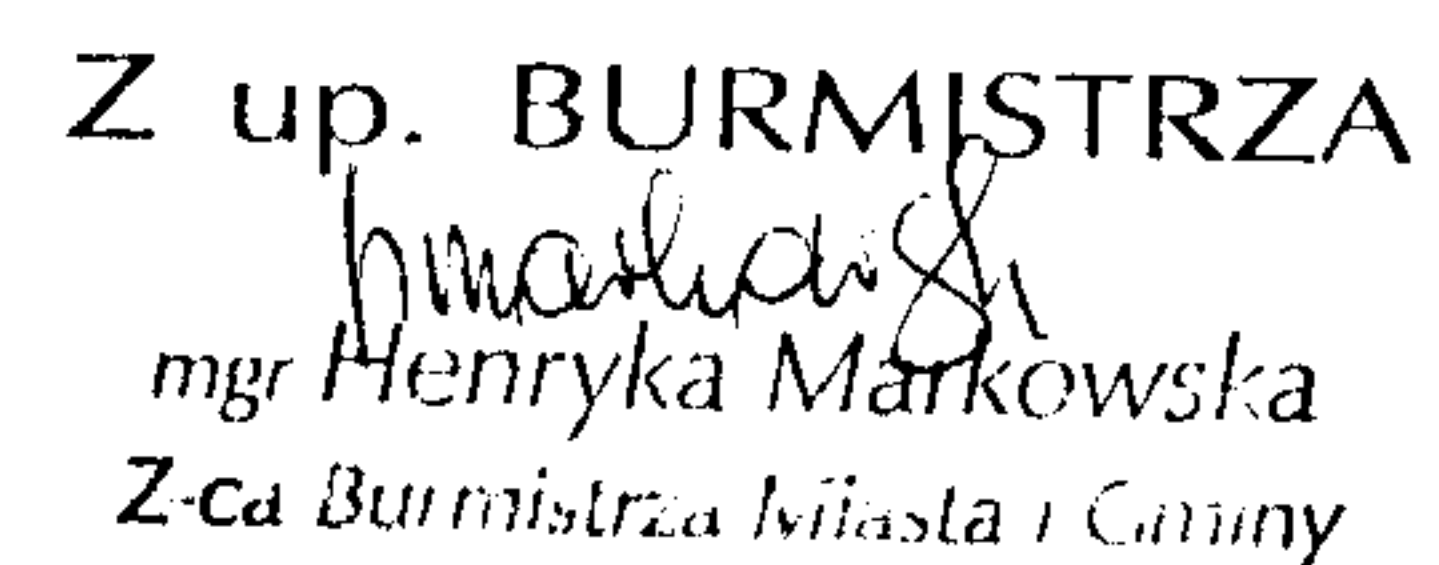 Z up. BURMISTRZA
mgr Henryka Markowska
Z-ca Burmistrza Miasta i Gminy